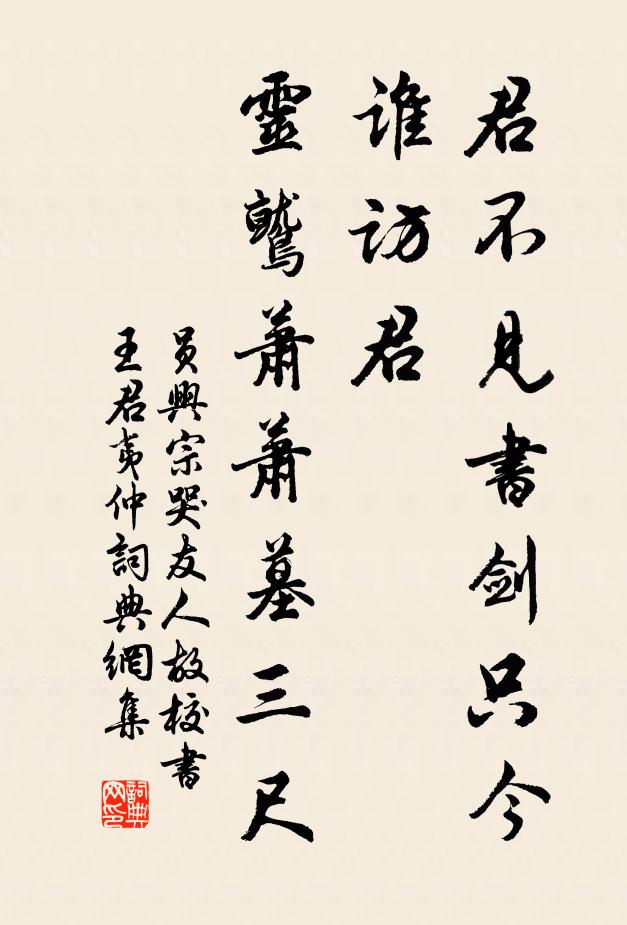 君不見書劍只今
誰訪君
靈鷲蕭蕭墓三尺
員興宗哭友人故校書
王君夷仲詞典網集
詞典网印